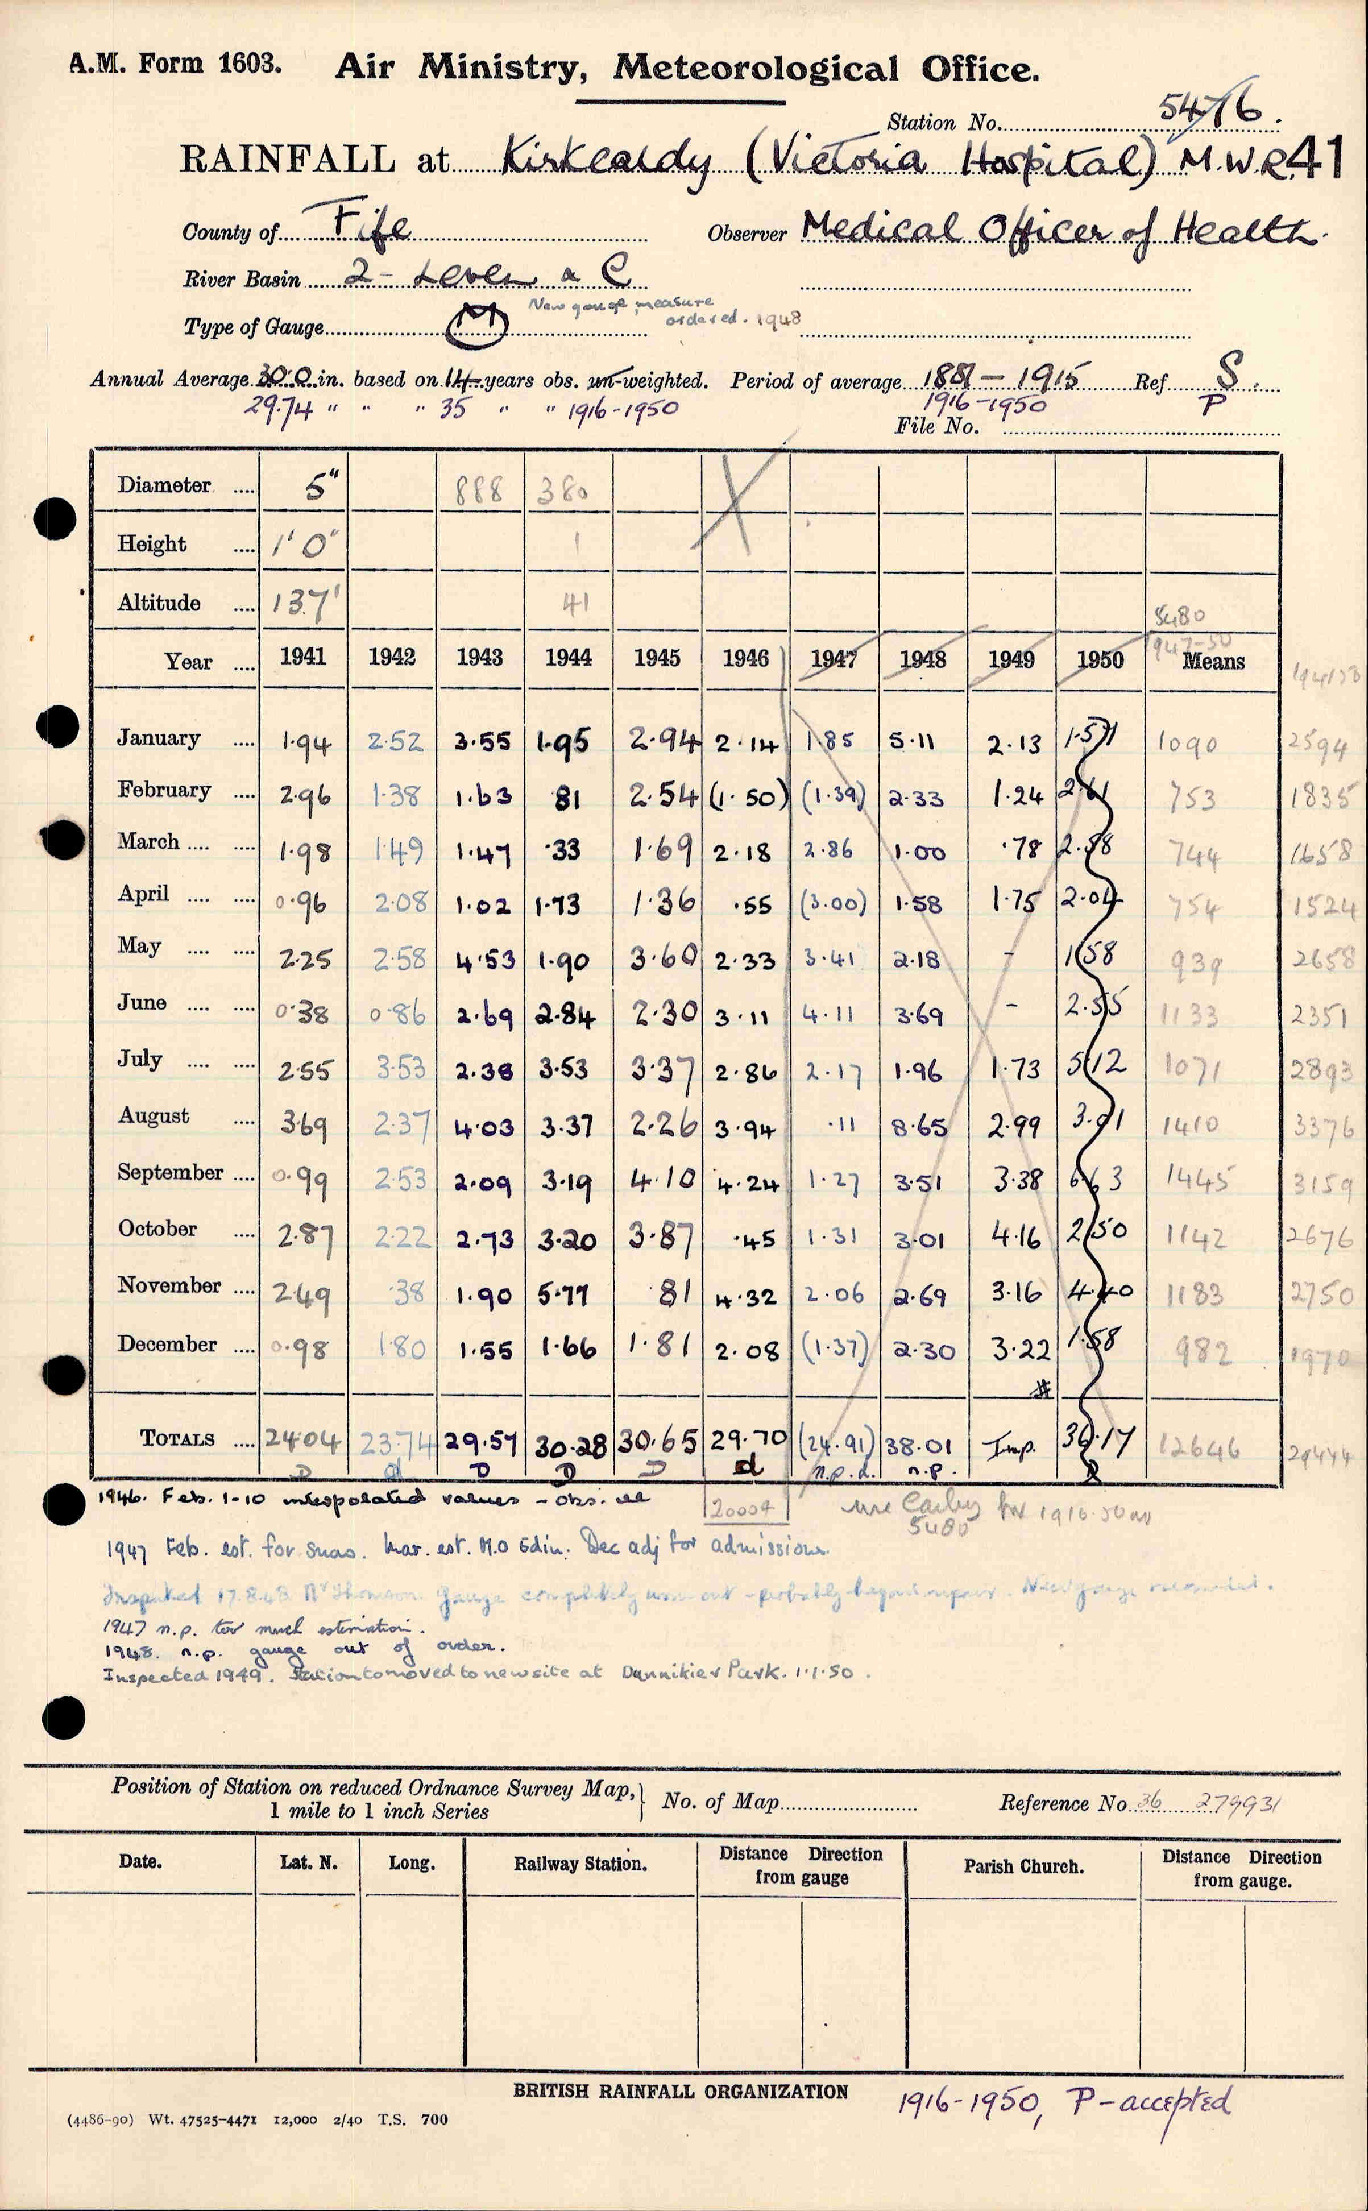 A.M. Form 1603. Air Ministry, Meteorological Office.
Station No. 5476.
RAINFALL at Kirkcaldy (Victoria Hospital) M.W.R. 41
County of Fife Observer Medical Officer of Health.
River Basin 2 - Leven & C
Type of Gauge M New gauge measure ordered. 1948
Annual Average 30.0 in. based on 14 years obs. un-weighted. Period of average 1881 - 1915 Ref S.
29.74 " " " 35 " " 1916-1950 1916-1950 P
File No.
Diameter .... 5" 888 380
Height .... 1' 0" 1
Altitude .... 137' 41
5480
1947-50
Year .... 1941 1942 1943 1944 1945 1946 1947 1948 1949 1950 Means
January .... 1.94 2.52 3.55 1.95 2.94 2.14 1.85 5.11 2.13 1.571 1090 2594
February .... 2.96 1.38 1.63 81 2.54 (1.50) (1.39) 2.33 1.24 2.61 753 1835
March .... .... 1.98 1.49 1.47 .33 1.69 2.18 2.86 1.00 .78 2.58 744 1658
April .... .... 0.96 2.08 1.02 1.73 1.36 .55 (3.00) 1.58 1.75 2.04 754 1524
May .... .... 2.25 2.58 4.53 1.90 3.60 2.33 3.41 2.18 - 1.58 939 2658
June .... .... 0.38 0.86 2.69 2.84 2.30 3.11 4.11 3.69 - 2.55 1133 2351
July .... .... 2.55 3.53 2.38 3.53 3.37 2.86 2.17 1.96 1.73 5.12 1071 2893
August .... 3.69 2.37 4.03 3.37 2.26 3.94 .11 8.65 2.99 3.91 1410 3376
September .... 0.99 2.53 2.09 3.19 4.10 4.24 1.27 3.51 3.38 6.63 1445 3159
October .... 2.87 2.22 2.73 3.20 3.87 .45 1.31 3.01 4.16 2.50 1142 2676
November .... 2.49 .38 1.90 5.77 81 4.32 2.06 2.69 3.16 4.40 1183 2750
December .... 0.98 1.80 1.55 1.66 1.81 2.08 (1.37) 2.30 3.22 1.58 982 1970
#
TOTALS .... 24.04 23.74 29.57 30.28 30.65 29.70 (24.91) 38.01 Imp. 36.17 12646 29444
D d D D D d n.p.d. n.p.
1946. Feb. 1-10 interpolated values - obs. ill 20004 use for 1916-50 av
5480
1947 Feb. est. for snow. Mar. est. M.O Edin. Dec adj for admissions
Inspected 17.8.48 Mr Thomson. Gauge completely worn out - probably beyond repair. New gauge recommended.
1947 n.p. too much estimation.
1948. n.p. gauge out of order.
Inspected 1949. Station to moved to new site at Dunnikier Park. 1.1.50.
Position of Station on reduced Ordnance Survey Map, 1 mile to 1 inch Series } No. of Map Reference No 36 279931
Date. Lat. N. Long. Railway Station. Distance Direction from gauge Parish Church. Distance Direction from gauge.
BRITISH RAINFALL ORGANIZATION
1916-1950, P - accepted
(4486-90) Wt. 47525-4471 12,000 2/40 T.S. 700